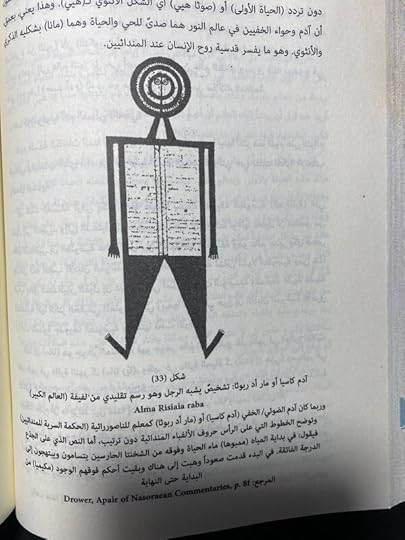 دون تردد (الحياة الأولى) أو (صوثا هيي) أي الشكل الأنثوي لـ(هيي). وهذا يعني، بعمق
أن آدم وحواء الخفيين في عالم النور هما صدىً للحي والحياة وهما (مانا) بشكليه الذكري
والأنثوي. وهو ما يفسر قدسية روح الإنسان عند المندائيين.
شكل (33)
آدم كاسيا أو مار أد ربوثا: تشخيصٌ يشبه الرجل وهو رسم تقليدي من لفيفة (العالم الكبير)
Alma Risiaia raba
وربما كان آدم الضوئي/ الخفي (آدم كاسيا) أو (مار أد ربوثا) كمعلم للناصورائية (الحكمة السرية للمندائيين)
وتوضح الخطوط التي على الرأس حروف الألفباء المندائية دون ترتيب، أما النص الذي على الجذع
فيقول: في بداية المياه (ممبوها) ماء الحياة وفوقه من الشخنتا الحارسين يتسامون ويبتهجون إلى
الدرجة الفائقة. في البدء قدمت صعوداً وهبت إلى هناك وبقيت أحكم فوقهم الوجود (مكيما) من
البداية حتى النهاية
المرجع: Drower, Apair of Nasoraean Commentaries, p. 8f